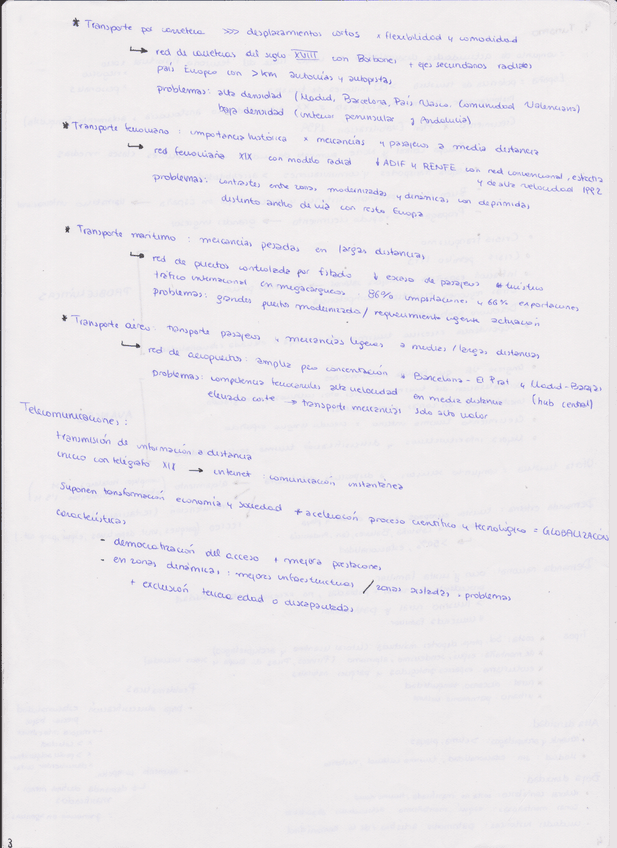 * Transporte por carretera >>> desplazamientos cortos x flexibilidad y comodidad
→ red de carreteras del siglo XVIII con Borbones + ejes secundarios radiales
país Europa con > km autovías y autopistas
problemas: alta densidad (Madrid, Barcelona, País Vasco, Comunidad Valenciana)
baja densidad (interior peninsular y Andalucía)
* Transporte ferroviario: importancia histórica x mercancías y pasajeros a media distancia
→ red ferroviaria XIX con modelo radial ↓ ADIF y RENFE con red convencional, estrecha
y de alta velocidad 1992
problemas: contrastes entre zonas modernizadas y dinámicas con deprimidas
distinto ancho de vía con resto Europa
* Transporte marítimo: mercancías pesadas en largas distancias
→ red de puertos controlada por Estado ↓ escaso de pasajeros turístico
tráfico internacional en megacargueros 86% importaciones y 66% exportaciones
problemas: grandes puertos modernizados / requerimiento urgente actuación
* Transporte aéreo: transporte pasajeros y mercancías ligeras a medias / largas distancias
→ red de aeropuertos: amplia pero concentración Barcelona - El Prat y Madrid-Barajas
problemas: competencia ferrocarriles alta velocidad en media distancia (hub central)
elevado coste → transporte mercancías solo alto valor
Telecomunicaciones:
transmisión de información a distancia
inicio con telégrafo XIX → internet: comunicación instantánea
Suponen transformación economía y sociedad + aceleración proceso científico y tecnológico = GLOBALIZACIÓN
características
- democratización del acceso + mejora prestaciones
- en zonas dinámicas: mejores infraestructuras / zonas aisladas problemas
+ exclusión tercera edad o discapacitadas
3